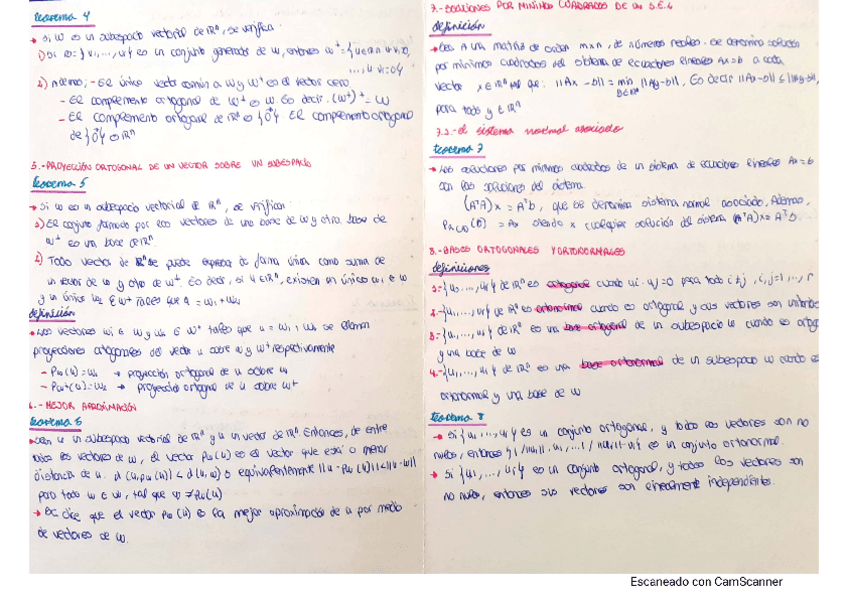 teorema 4
→ Si W es un subespacio vectorial de ℝⁿ, se verifica
1) Si G={v₁,...,vᵣ} es un conjunto generador de W, entonces W⊥={u∈ℝⁿ u·v₁=0,
..., u·vᵣ=0}
2) Además; - El único vector común a W y W⊥ es el vector cero
- El complemento ortogonal de W⊥ es W. Es decir (W⊥)⊥ = W
- El complemento ortogonal de ℝⁿ es {0⃗} El complemento ortogonal
de {0⃗} es ℝⁿ
5.-PROYECCIÓN ORTOGONAL DE UN VECTOR SOBRE UN SUBESPACIO
teorema 5
→ Si W es un subespacio vectorial de ℝⁿ, se verifican
1) El conjunto formado por los vectores de una base de W y otra base de
W⊥ es una base de ℝⁿ.
2) Todo vector de ℝⁿ se puede expresar de forma única como suma de
un vector de W y otro de W⊥. Es decir, si u∈ℝⁿ, existen un único w₁ ∈ W
y un único w₂ ∈ W⊥ tales que u = w₁ + w₂
definición
• Los vectores w₁ ∈ W y w₂ ∈ W⊥ tales que u = w₁ + w₂ se llaman
proyecciones ortogonales del vector u sobre W y W⊥ respectivamente
- Pw(u)=w₁ → proyección ortogonal de u sobre W
- Pw⊥(u)=w₂ → proyección ortogonal de u sobre W⊥
6.- MEJOR APROXIMACIÓN
teorema 6
• Sean W un subespacio vectorial de ℝⁿ y u un vector de ℝⁿ. Entonces, de entre
todos los vectores de W, el vector Pw(u) es el vector que está a menor
distancia de u. d(u,Pw(u)) < d(u,w) o equivalentemente ||u - Pw(u)||<||u-w||
para todo w ∈ W, tal que w ≠ Pw(u)
→ Se dice que el vector Pw(u) es la mejor aproximación de u por medio
de vectores de W.
7.-SOLUCIONES POR MÍNIMOS CUADRADOS DE UN S.E.L
definición
→ Sea A una matriz de orden m×n, de números reales. Se denomina solución
por mínimos cuadrados del sistema de ecuaciones lineales Ax=b a cada
vector x∈ℝⁿ tal que: ||Ax-b||= min ||Ay-b||, Es decir ||Ax-b||≤||Ay-b||,
para todo y∈ℝⁿ
7.1.-el sistema normal asociado
teorema 7
→ Las soluciones por mínimos cuadrados de un sistema de ecuaciones lineales Ax=b
son las soluciones del sistema
(AᵗA)x = Aᵗb, que se denomina sistema normal asociado, Además,
(b) = Ax siendo x cualquier solución del sistema (AᵗA)x=Aᵗb.
8.-BASES ORTOGONALES Y ORTONORMALES
definiciones
1.-{u₁,...,uᵣ} de ℝⁿ es ortogonal cuando uᵢ·uⱼ=0 para todo i≠j, i,j=1,..., r
2.-{u₁,...,uᵣ} de ℝⁿ es ortonormal cuando es ortogonal y sus vectores son unitarios
3.-{u₁,...,uᵣ} de ℝⁿ es una base ortogonal de un subespacio W cuando es ortog
y una base de W
4.-{u₁,...,uᵣ} de ℝⁿ es una base ortonormal de un subespacio W cuando es
ortonormal y una base de W
teorema 8
→ Si {u₁,...,uᵣ} es un conjunto ortogonal, y todos los vectores son no
nulos, entonces {1/||u₁||·u₁,...,1/||uᵣ||·uᵣ} es un conjunto ortonormal.
→ Si {u₁,...,uᵣ} es un conjunto ortogonal, y todos los vectores son
no nulos, entonces sus vectores son linealmente independientes.
Escaneado con CamScanner